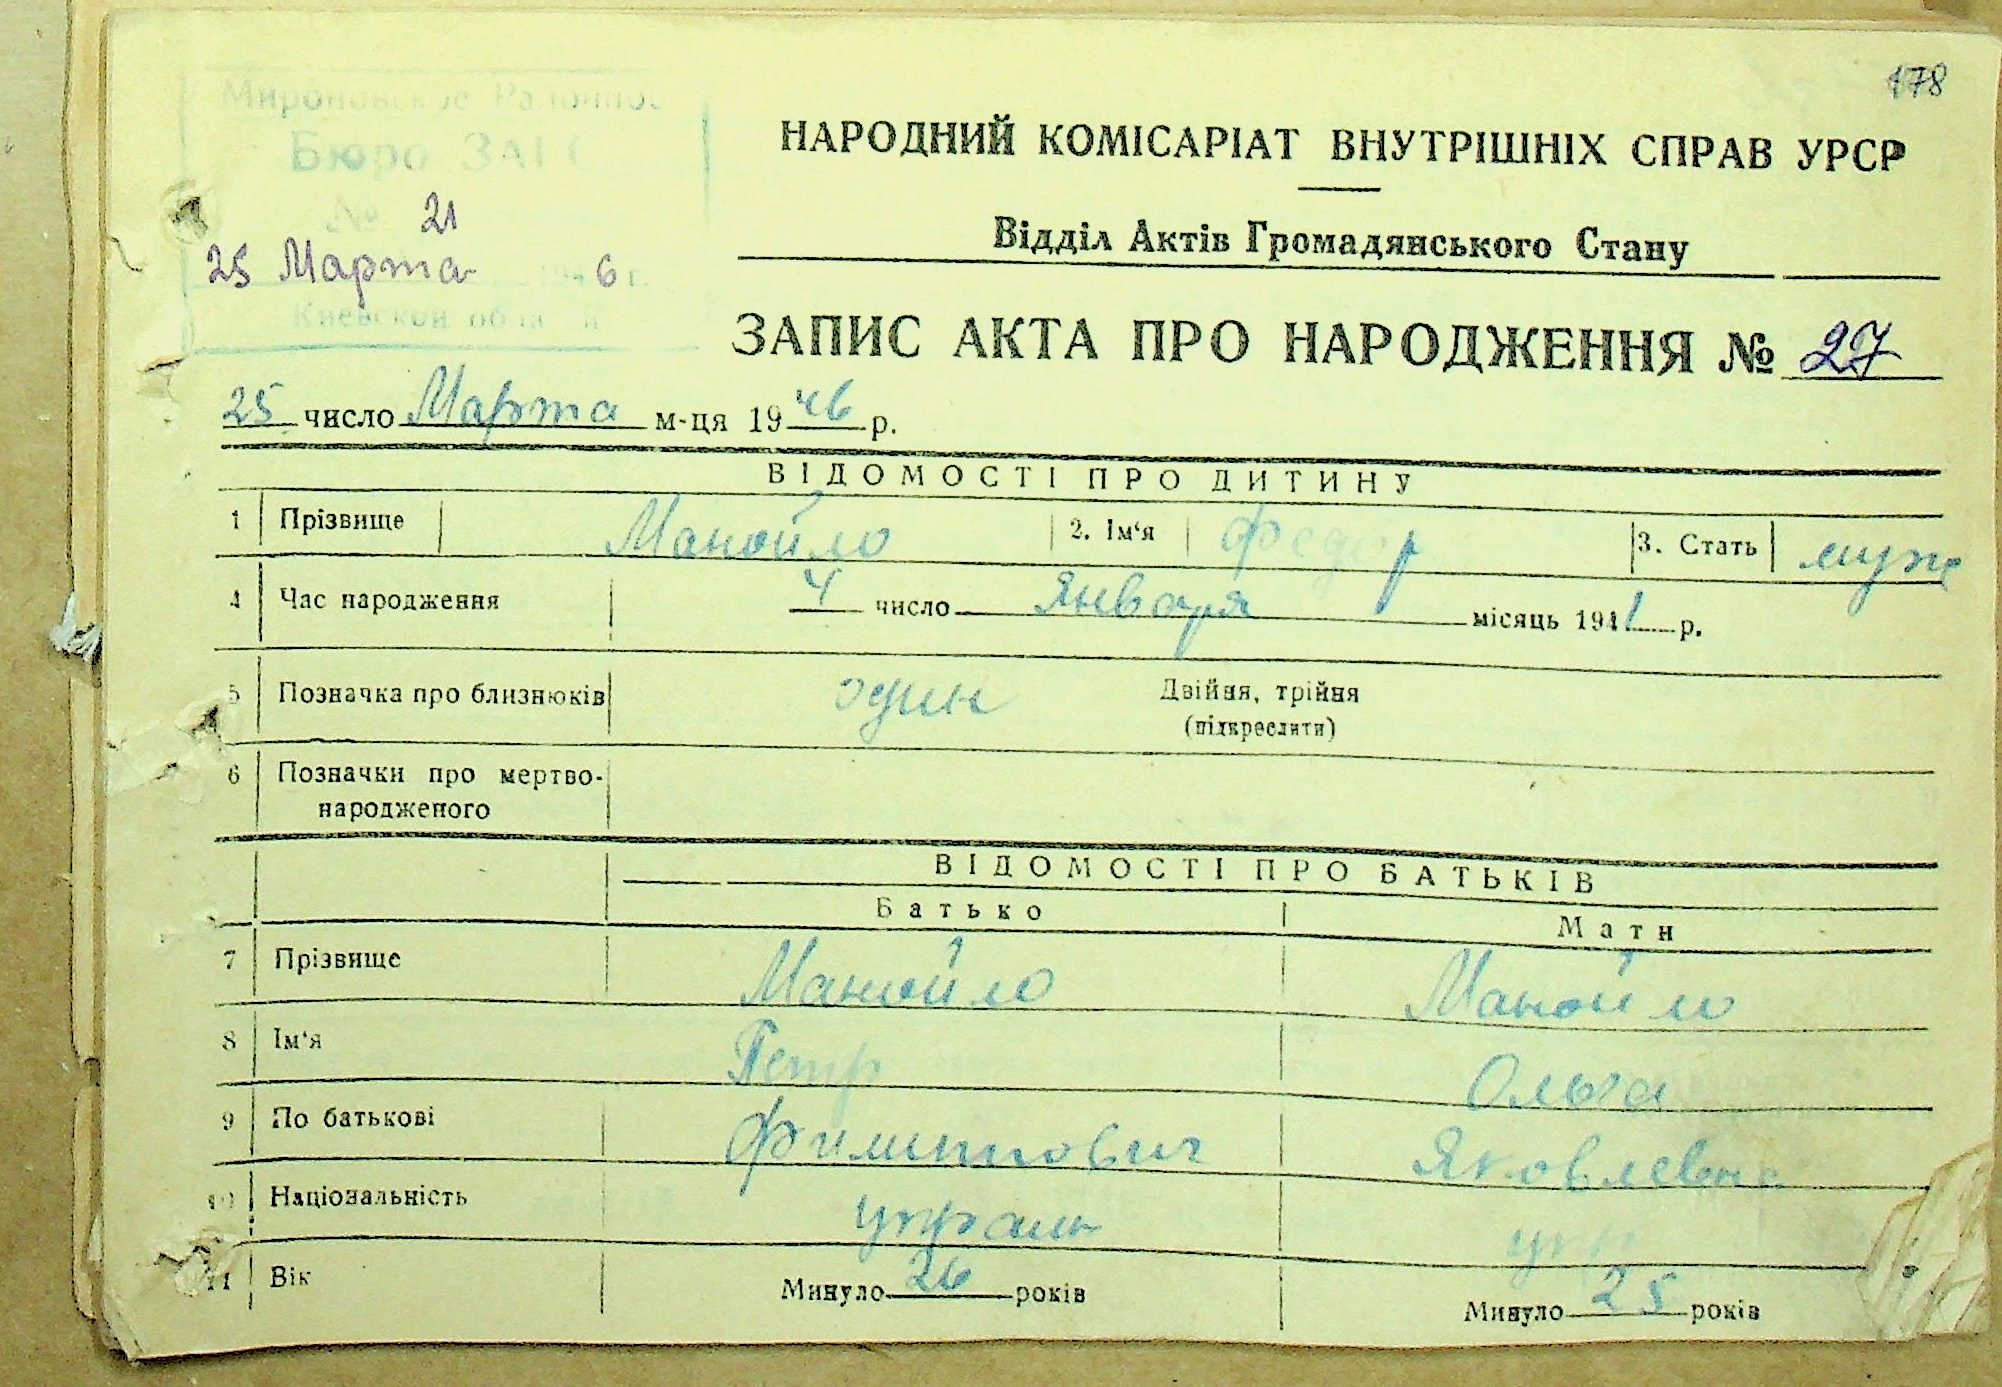 178
Мироновское Районное
Бюро ЗАГС
№ 21
25 Марта 1946 г.
Киевской области
НАРОДНИЙ КОМІСАРІАТ ВНУТРІШНІХ СПРАВ УРСР
Відділ Актів Громадянського Стану
ЗАПИС АКТА ПРО НАРОДЖЕННЯ № 27
25 число Марта м-ця 1946 р.
ВІДОМОСТІ ПРО ДИТИНУ
1 Прізвище Манойло 2. Ім‘я Федор 3. Стать муж
4 Час народження 4 число Января місяць 1941 р.
5 Позначка про близнюків один Двійня, трійня
(підкреслити)
6 Позначки про мертво-
народженого
ВІДОМОСТІ ПРО БАТЬКІВ
Батько Мати
7 Прізвище Манойло Манойло
8 Ім‘я Петр Ольга
9 По батькові Филиппович Яковлевна
10 Національність украин укр
11 Вік Минуло 26 років Минуло 25 років